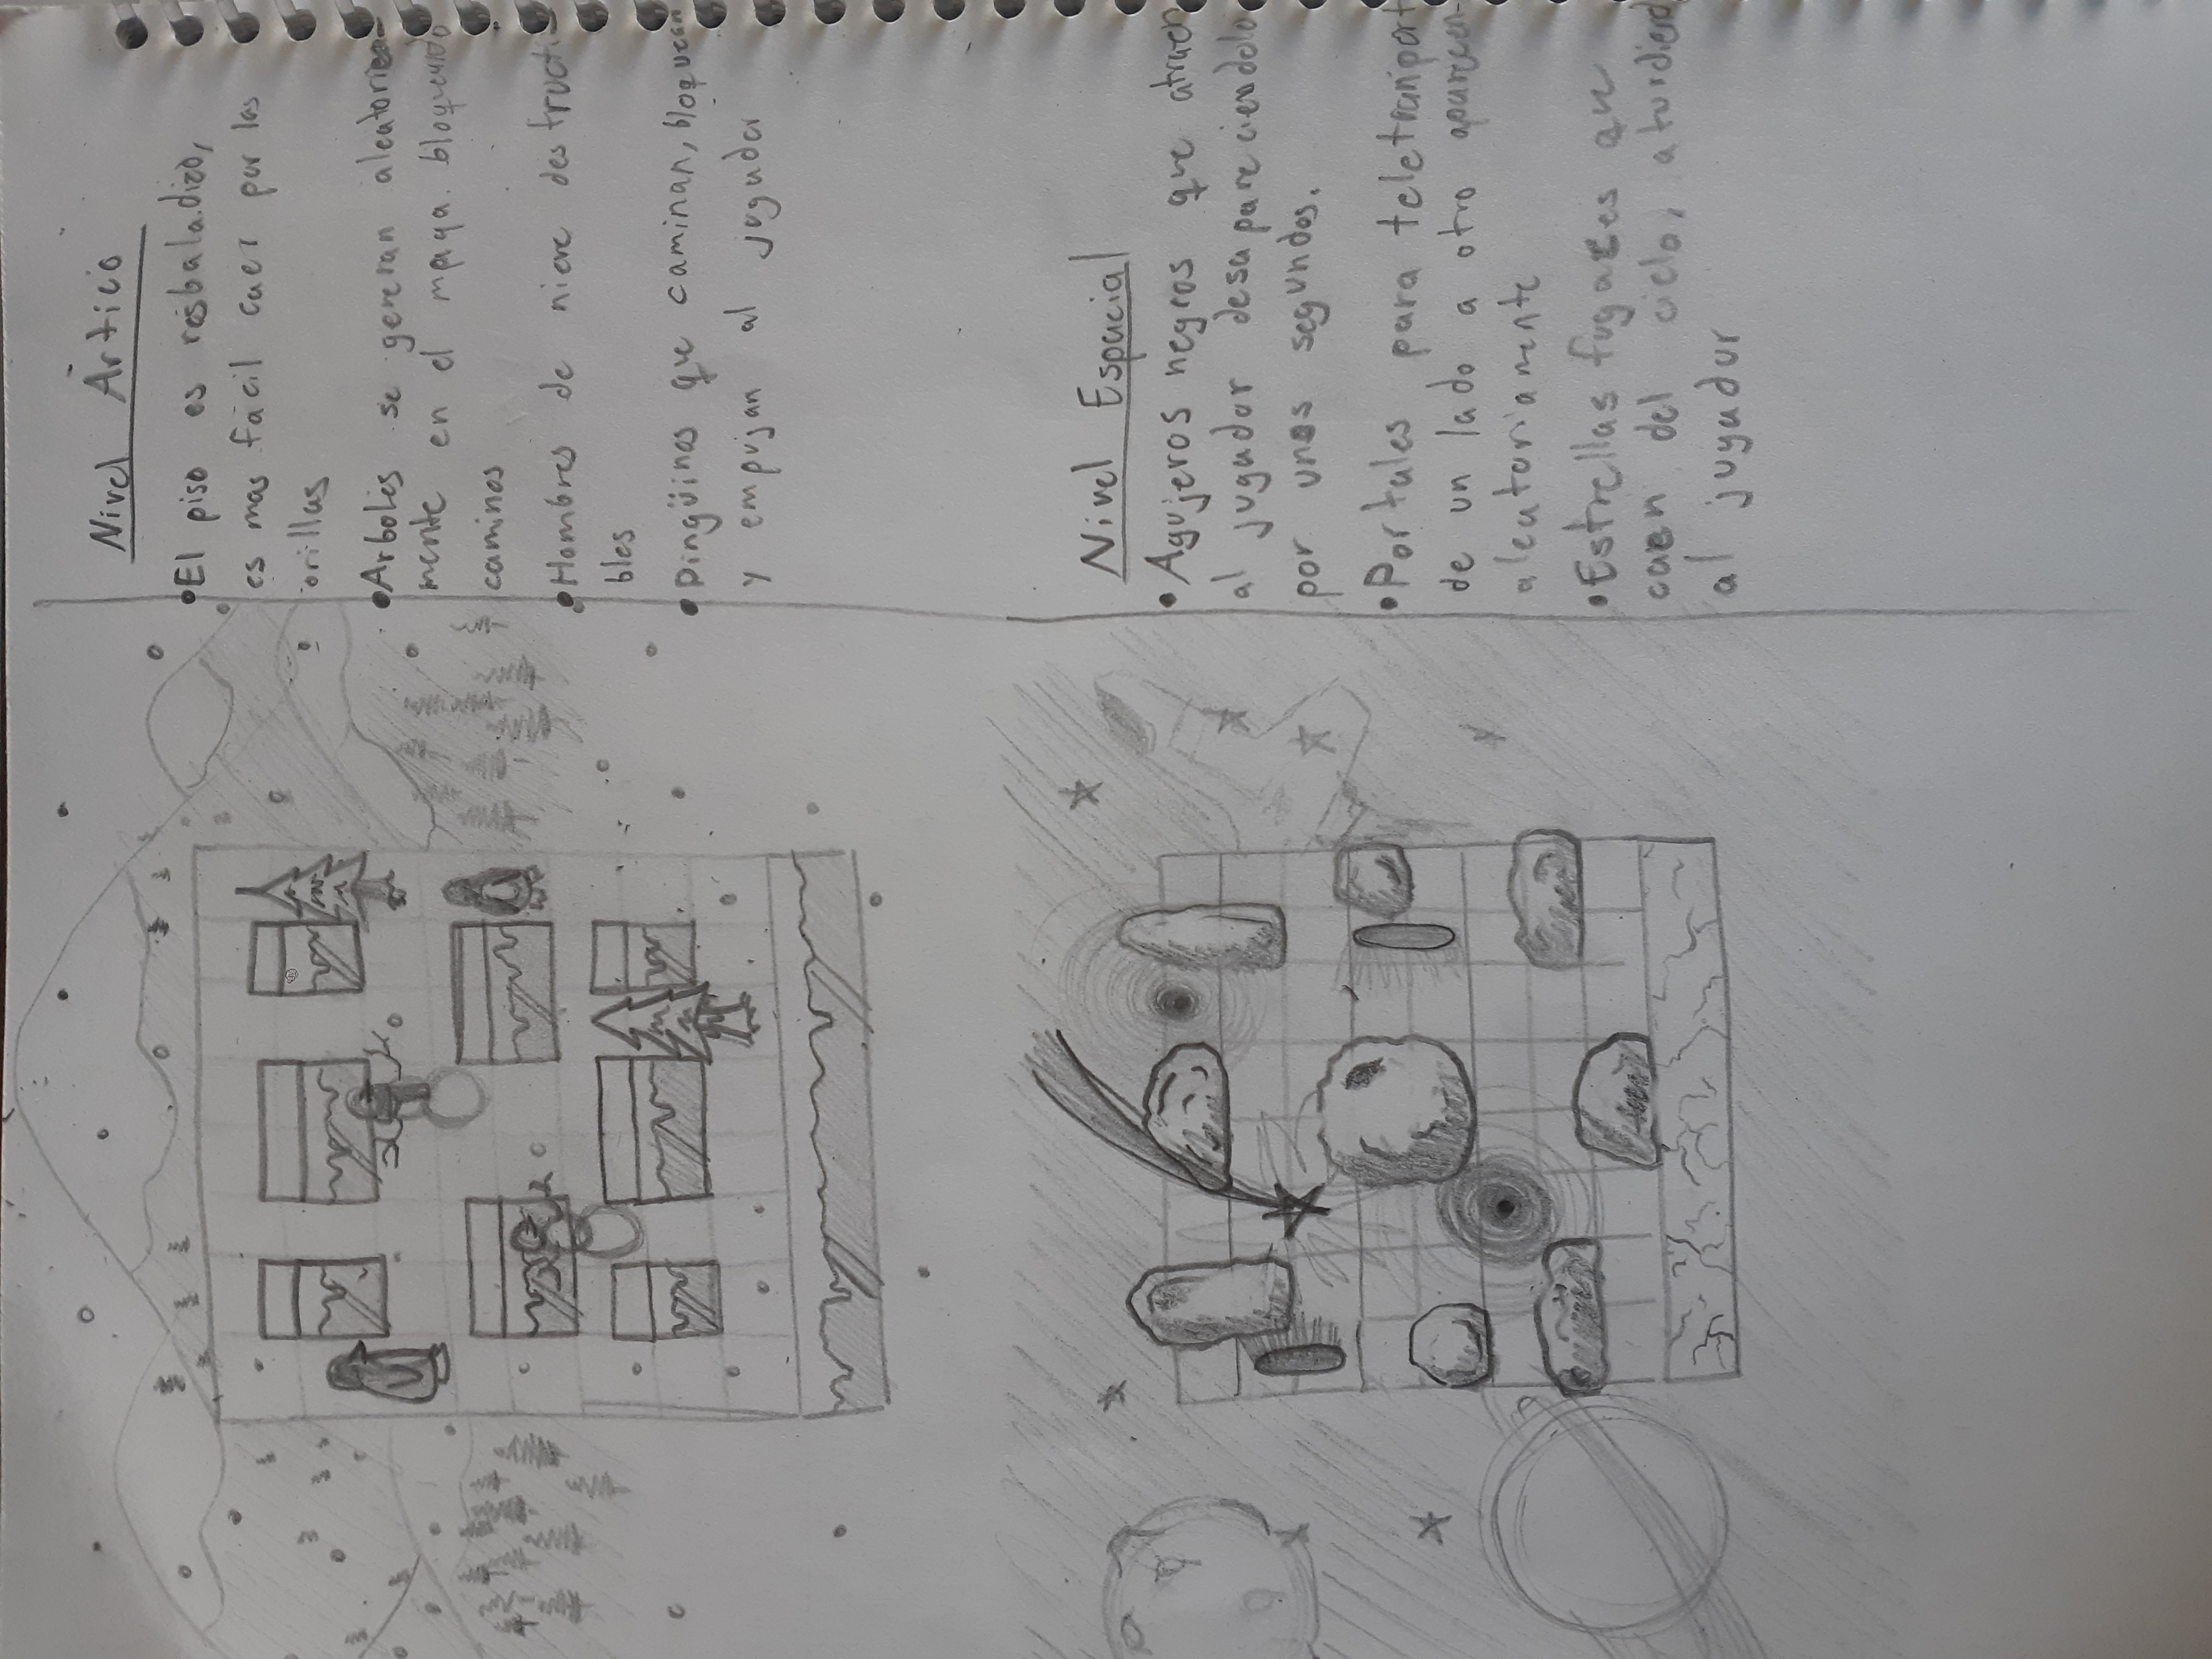 Nivel Ártico
• El piso es resbaladizo,
es mas fácil caer por las
orillas
• Arboles se generan aleatoria-
mente en el mapa. bloqueando
caminos
• Hombres de nieve destructi-
bles
• Pingüinos que caminan, bloquean
y empujan al jugador
Nivel Espacial
• Agujeros negros que atraen
al jugador desapareciendolo
por unos segundos.
• Portales para teletranport
de un lado a otro aparecen-
aleatoriamente
• Estrellas fugaces que
caen del cielo, aturdiend
al jugador